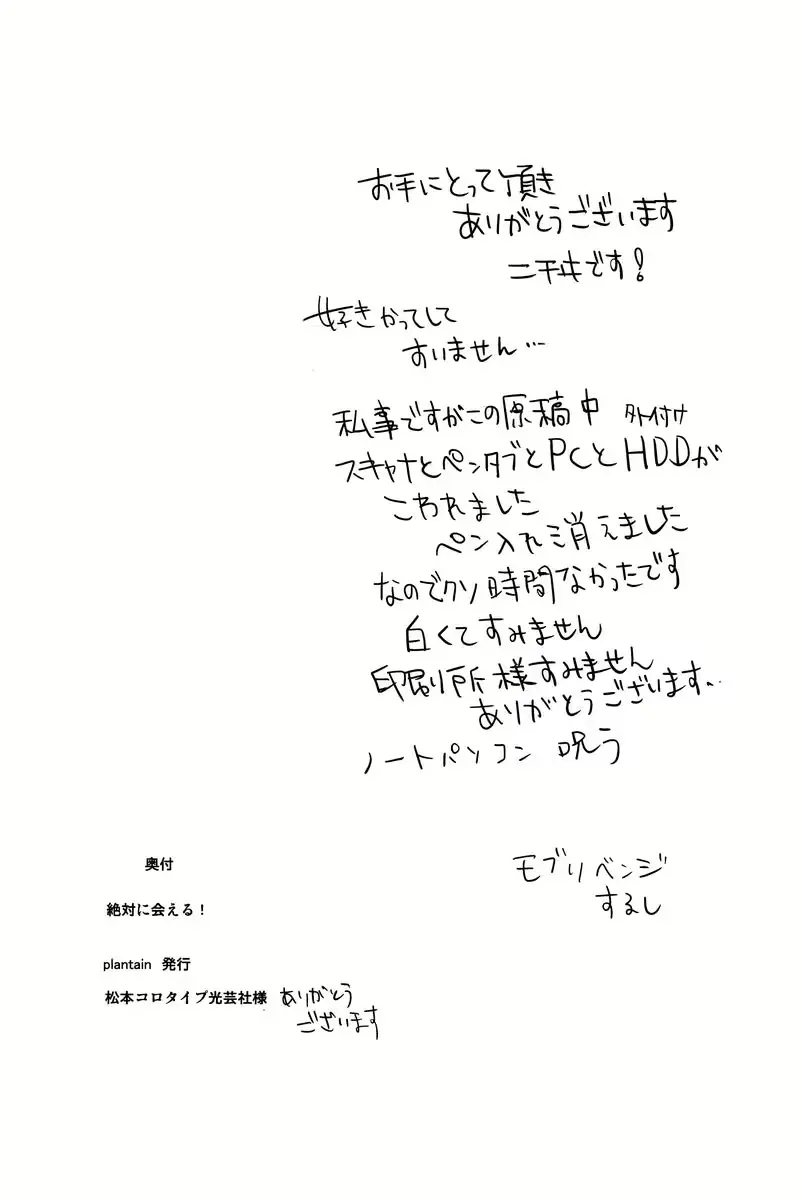 お手にとって頂き
ありがとうございます
二千ヰです！
好きかってして
すいません…
私事ですがこの原稿中 外付け
スキャナとペンタブとPCとHDDが
こわれました
ペン入れ消えました
なのでクソ時間なかったです
白くてすみません
印刷所様すみません
ありがとうございます..
ノートパソコン 呪う
モブリベンジ
するし
奥付
絶対に会える！
plantain 発行
松本コロタイプ光芸社様 ありがとう
ございます